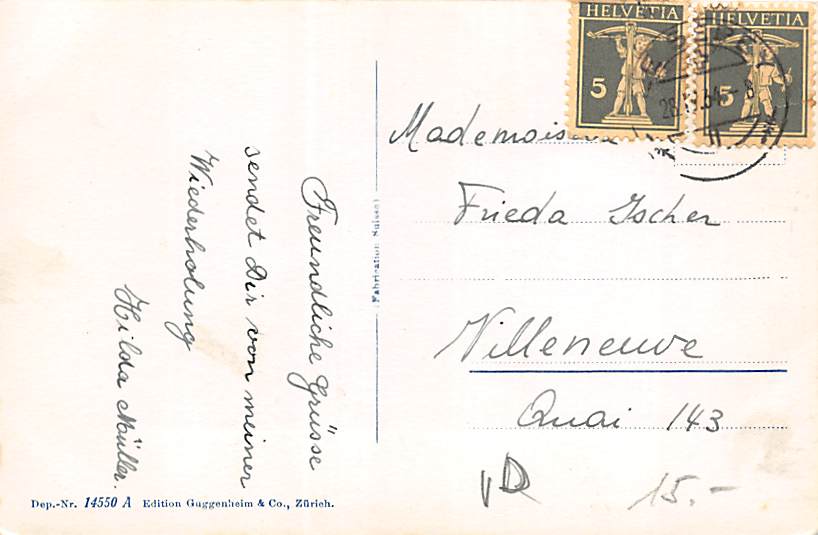 Freundliche Grüsse
sendet Dir von meiner
Wiederholung
Hilda Müller.
Dep.-Nr. 14550 A Edition Guggenheim & Co., Zürich.
Fabrication Suisse
HELVETIA
5
HELVETIA
5
Frieda Ischer
Villeneuve
Quai 143
15.-